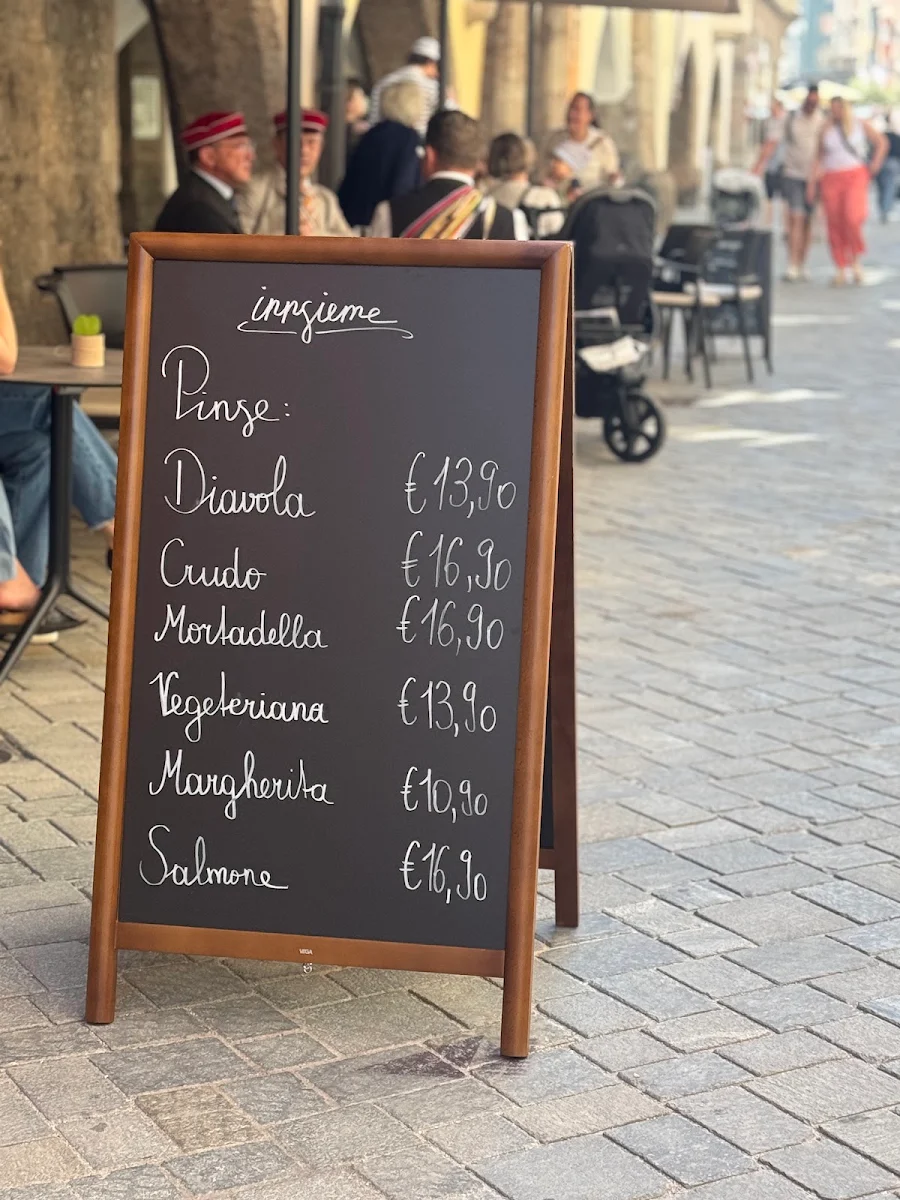 innsieme
Pinse:
Diavola €13,90
Crudo €16,90
Mortadella €16,90
Vegeteriana €13,90
Margherita €10,90
Salmone €16,90
VEGA